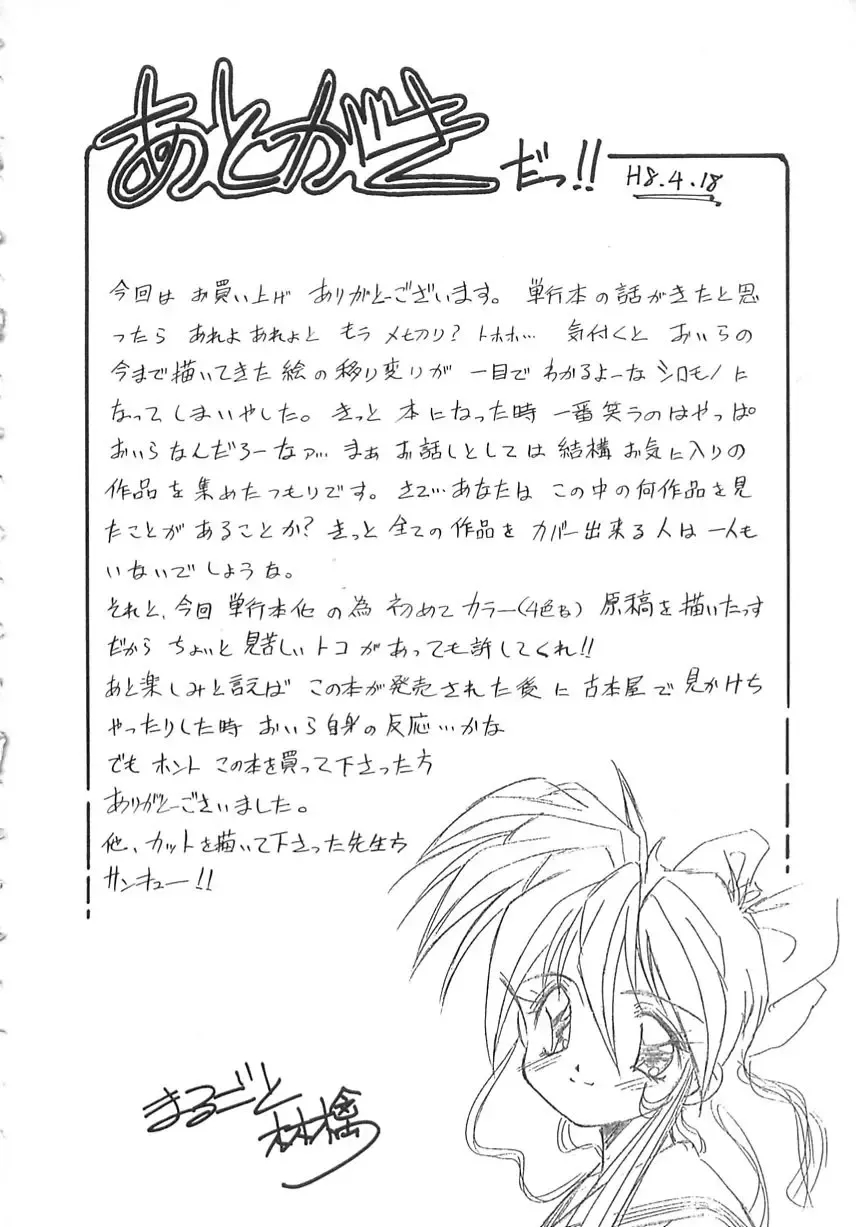 あとがき だっ!!
H8.4.18
今回は お買い上げ ありがとーございます。 単行本の話がきたと思
ったら あれよあれよと もう 〆切り? トホホ… 気付くと おいらの
今まで描いてきた絵の移り変りが 一目で わかるよーな シロモノに
なってしまいやした。 きっと 本になった時 一番笑うのはやっぱ
おいらなんだろーなァ… まぁ お話しとしては 結構 お気に入りの
作品を集めたつもりです。 さて…あなたは この中の何作品を見
たことがあることか? きっと 全ての作品を カバー出来る人は一人も
いないでしょうな。
それと、今回 単行本化の為 初めてカラー(4色も) 原稿を描いたっす
だから ちょいと 見苦しいトコがあっても許してくれ!!
あと楽しみと言えば この本が発売された後に 古本屋で見かけち
ゃったりした時 おいら自身の反応…かな
でも ホント この本を買って下さった方
ありがとーございました。
他、カットを描いて下さった先生方
サンキュー!!
まるごと
林檎